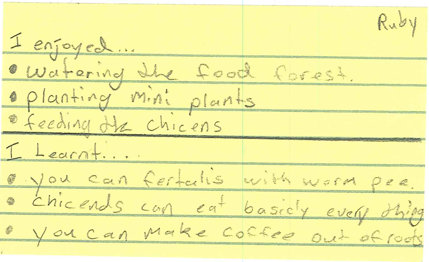 Ruby
I enjoyed...
• watering the food forest.
• planting mini plants
• feeding the chicens
I Learnt....
• you can fertalis with worm pee.
• chicends can eat basicly every thing
• you can make coffee out of roots